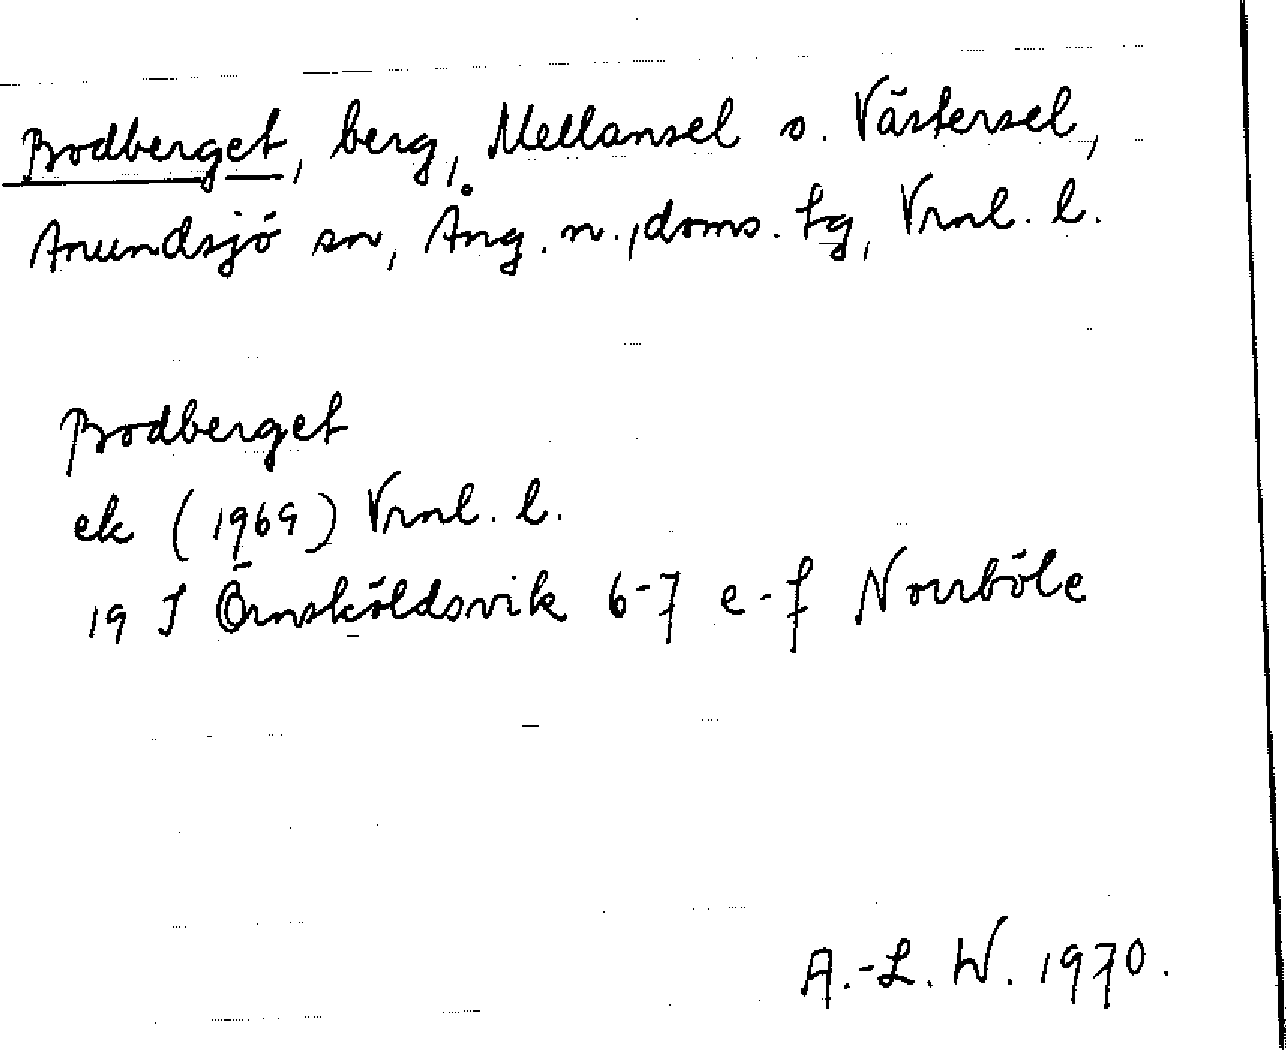 Bodberget, berg, Mellansel o. Västersel,
Anundsjö sn, Ång. n., doms. tg, Vrnl. l.
Bodberget
ek (1969) Vrnl. l.
19 J Örnsköldsvik 6-7 e-f Norrböle
A.-L. W. 1970.